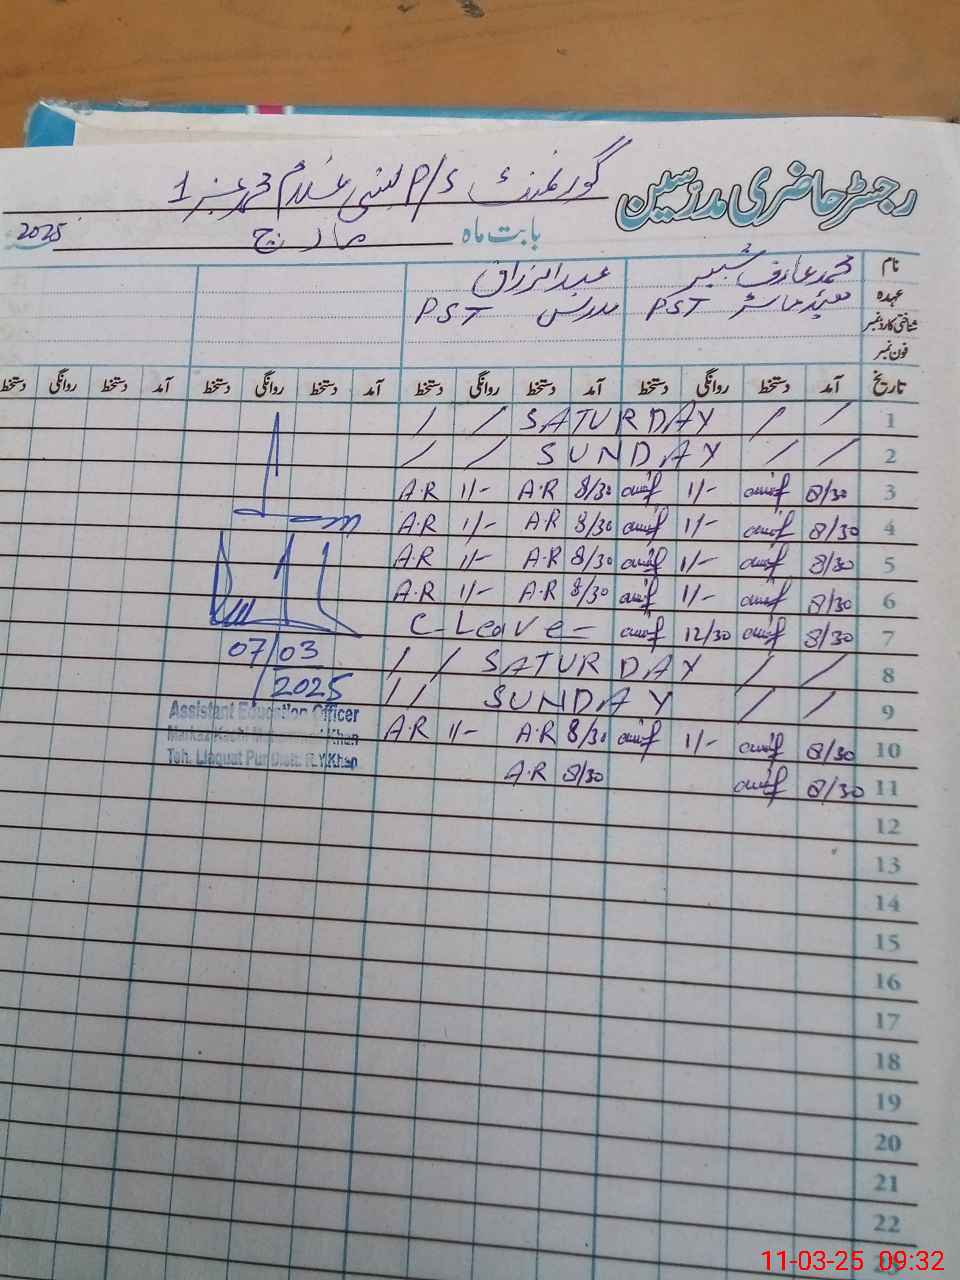 رجسٹر حاضری مدرسین گورنمنٹ P/S بستی غلام محمد نمبر 1
بابت ماہ مارچ 2025
نام محمد عارف شبیر عبدالرزاق
عہدہ ہیڈ ماسٹر PST مدرس PST
شناختی کارڈ نمبر
فون نمبر
تاریخ آمد دستخط روانگی دستخط آمد دستخط روانگی دستخط آمد دستخط روانگی دستخط آمد دستخط روانگی دستخط
1 / / SATURDAY / /
2 / / SUNDAY / /
3 8/30 1/- 8/30 A.R 1/- A.R
4 8/30 1/- 8/30 A.R 1/- A.R
5 8/30 1/- 8/30 A.R 1/- A.R
6 8/30 1/- 8/30 A.R 1/- A.R
7 8/30 12/30 C-Leave-
8 / / SATURDAY / /
9 / / SUNDAY / /
10 8/30 1/- 8/30 A.R 1/- A.R
11 8/30 8/30 A.R
12
13
14
15
16
17
18
19
20
21
22
23
07/03
/2025
Assistant Education Officer
Markaz Muhammad Khan
Teh. Liaquat Pur Distt: R.Y.Khan
11-03-25 09:32